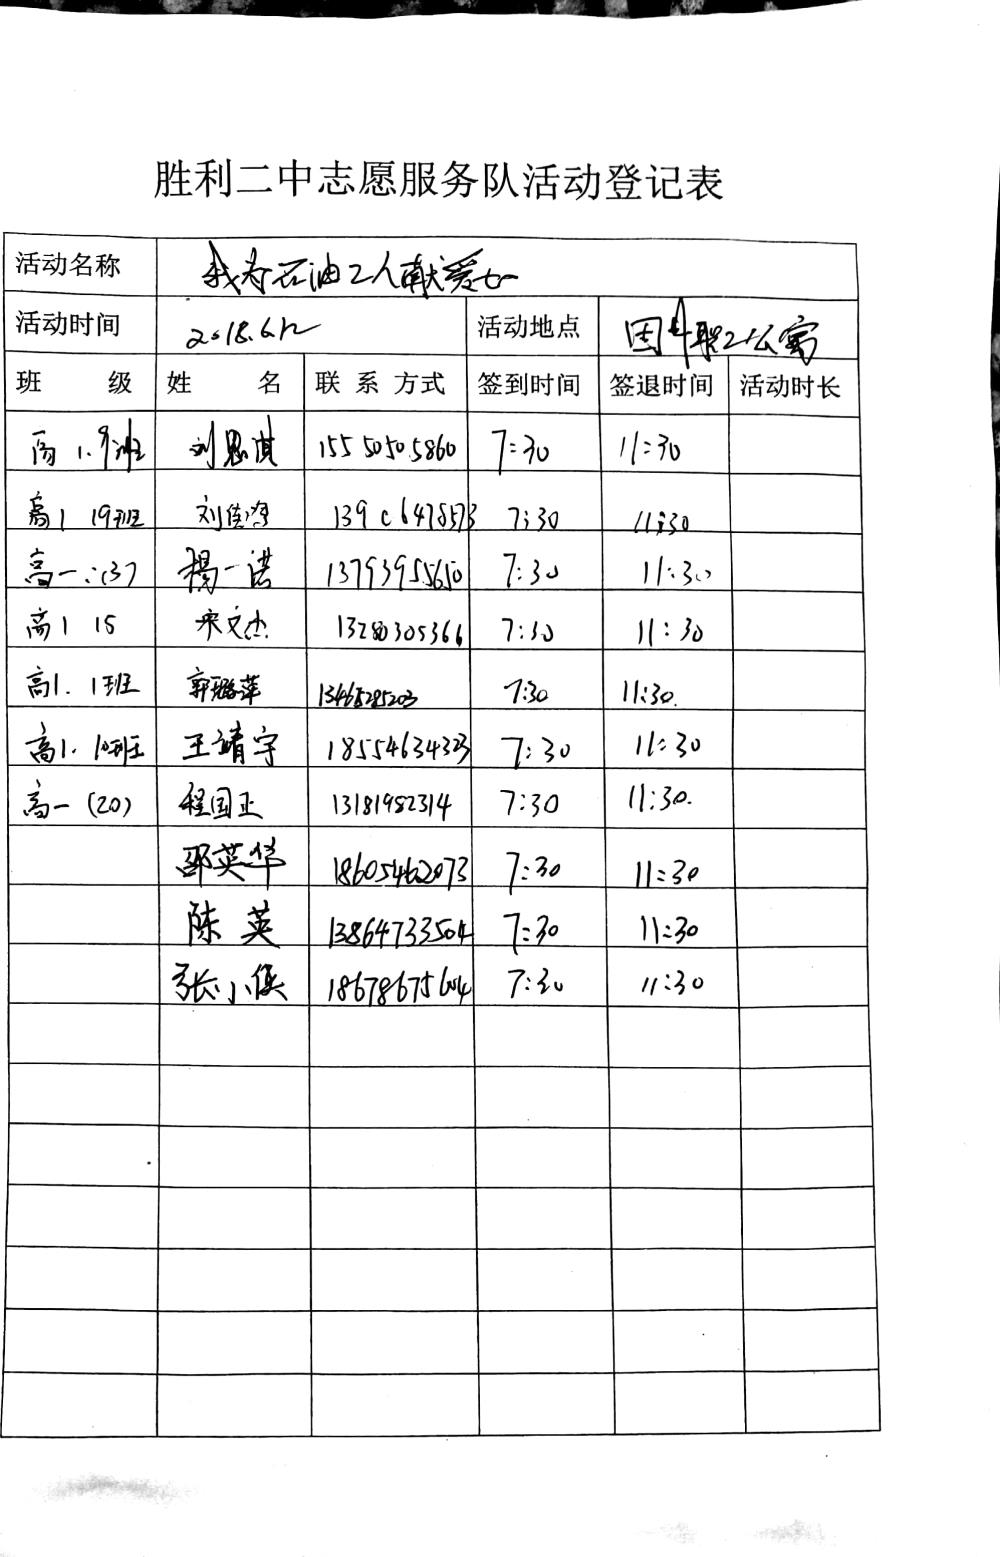 胜利二中志愿服务队活动登记表
活动名称 我为石油工人献爱心
活动时间 2018.6.12 活动地点 职工公寓
班 级 姓 名 联 系 方式 签到时间 签退时间 活动时长
高1.9班 刘思淇 15550505860 7:30 11:30
高1 19班 刘 7:30 11:30
高一 杨一诺 13793955650 7:30 11:30
高1 15 宋文杰 13280305366 7:30 11:30
高1.1班 郭璐萍 13465285203 7:30 11:30.
高1.10班 王靖宇 18554634323 7:30 11:30
高一(20) 程国正 13181982314 7:30 11:30.
邵英华 18605462073 7:30 11:30
陈英 13864733504 7:30 11:30
张小侠 18678675604 7:30 11:30